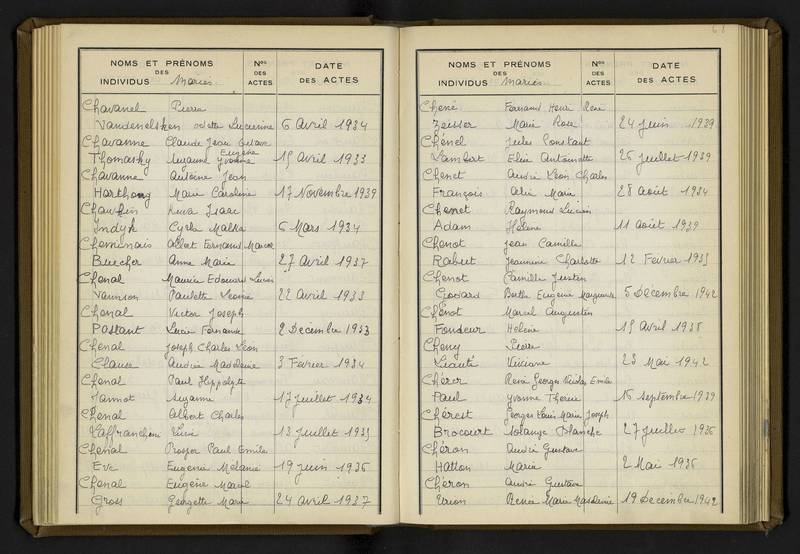 NOMS ET PRÉNOMS
DES
INDIVIDUS Mariés
Nos
DES
ACTES
DATE
DES ACTES
Chavanel Pierre
Vandenelsken Odette Lucienne 6 Avril 1934
Chavanne Claude Jean Gustave
Eugène
Thomassky Suzanne Yvonne 15 Avril 1933
Chavanne Antoine Jean
Harthong Marie Caroline 17 Novembre 1939
Isaac
Indyk Cyrla Malka 6 Mars 1934
Cheminais Albert Fernand Marcel
Buecher Anne Marie 27 Avril 1937
Chenal Maurice Edouard Lucien
Paulette Leonie 22 Avril 1933
Chenal Victor Joseph
Passant Lucie Fernande 2 Décembre 1933
Chenal Joseph Charles Léon
Claude Andrée Madeleine 3 Février 1934
Chenal Paul Hippolyte
Jannot Suzanne 17 Juillet 1934
Chenal Albert Charles
Zaffranchini Lucie 13 Juillet 1935
Chenal Prosper Paul Emile
Eve Eugenie Mélanie 19 Juin 1936
Chenal Eugène Marcel
Gross Georgette Marie 24 Avril 1937
NOMS ET PRÉNOMS
DES
INDIVIDUS Mariés
Nos
DES
ACTES
DATE
DES ACTES
Chené Fernand Henri René
Zeisser Marie Rose 24 Juin 1939
Chenel Jules Constant
Lambert Elise Antoinette 26 Juillet 1939
Chenet André Léon Charles
François Marie 28 Août 1934
Chenot Raymond Lucien
Adam Hélène 11 Août 1939
Chenot Jean Camille
Rabut Jeannine Charlotte 12 Février 1935
Chenot Camille Justin
Govard Berthe Eugénie Marguerite 5 Décembre 1942
Chenot Marcel Augustin
Fondeur Hélène 15 Avril 1938
Cheny Pierre
Liauté Viviane 23 Mai 1942
Chérer René Georges Nicolas Emile
Paul Yvonne Therese 16 Septembre 1939
Chérest Georges Louis Marie Joseph
Brocourt Solange Blanche 27 Juillet 1936
Chéron André Gustave
Hatton Marie 2 Mai 1936
Chéron André Gustave
Renée Marie Madeleine 19 Decembre 1942